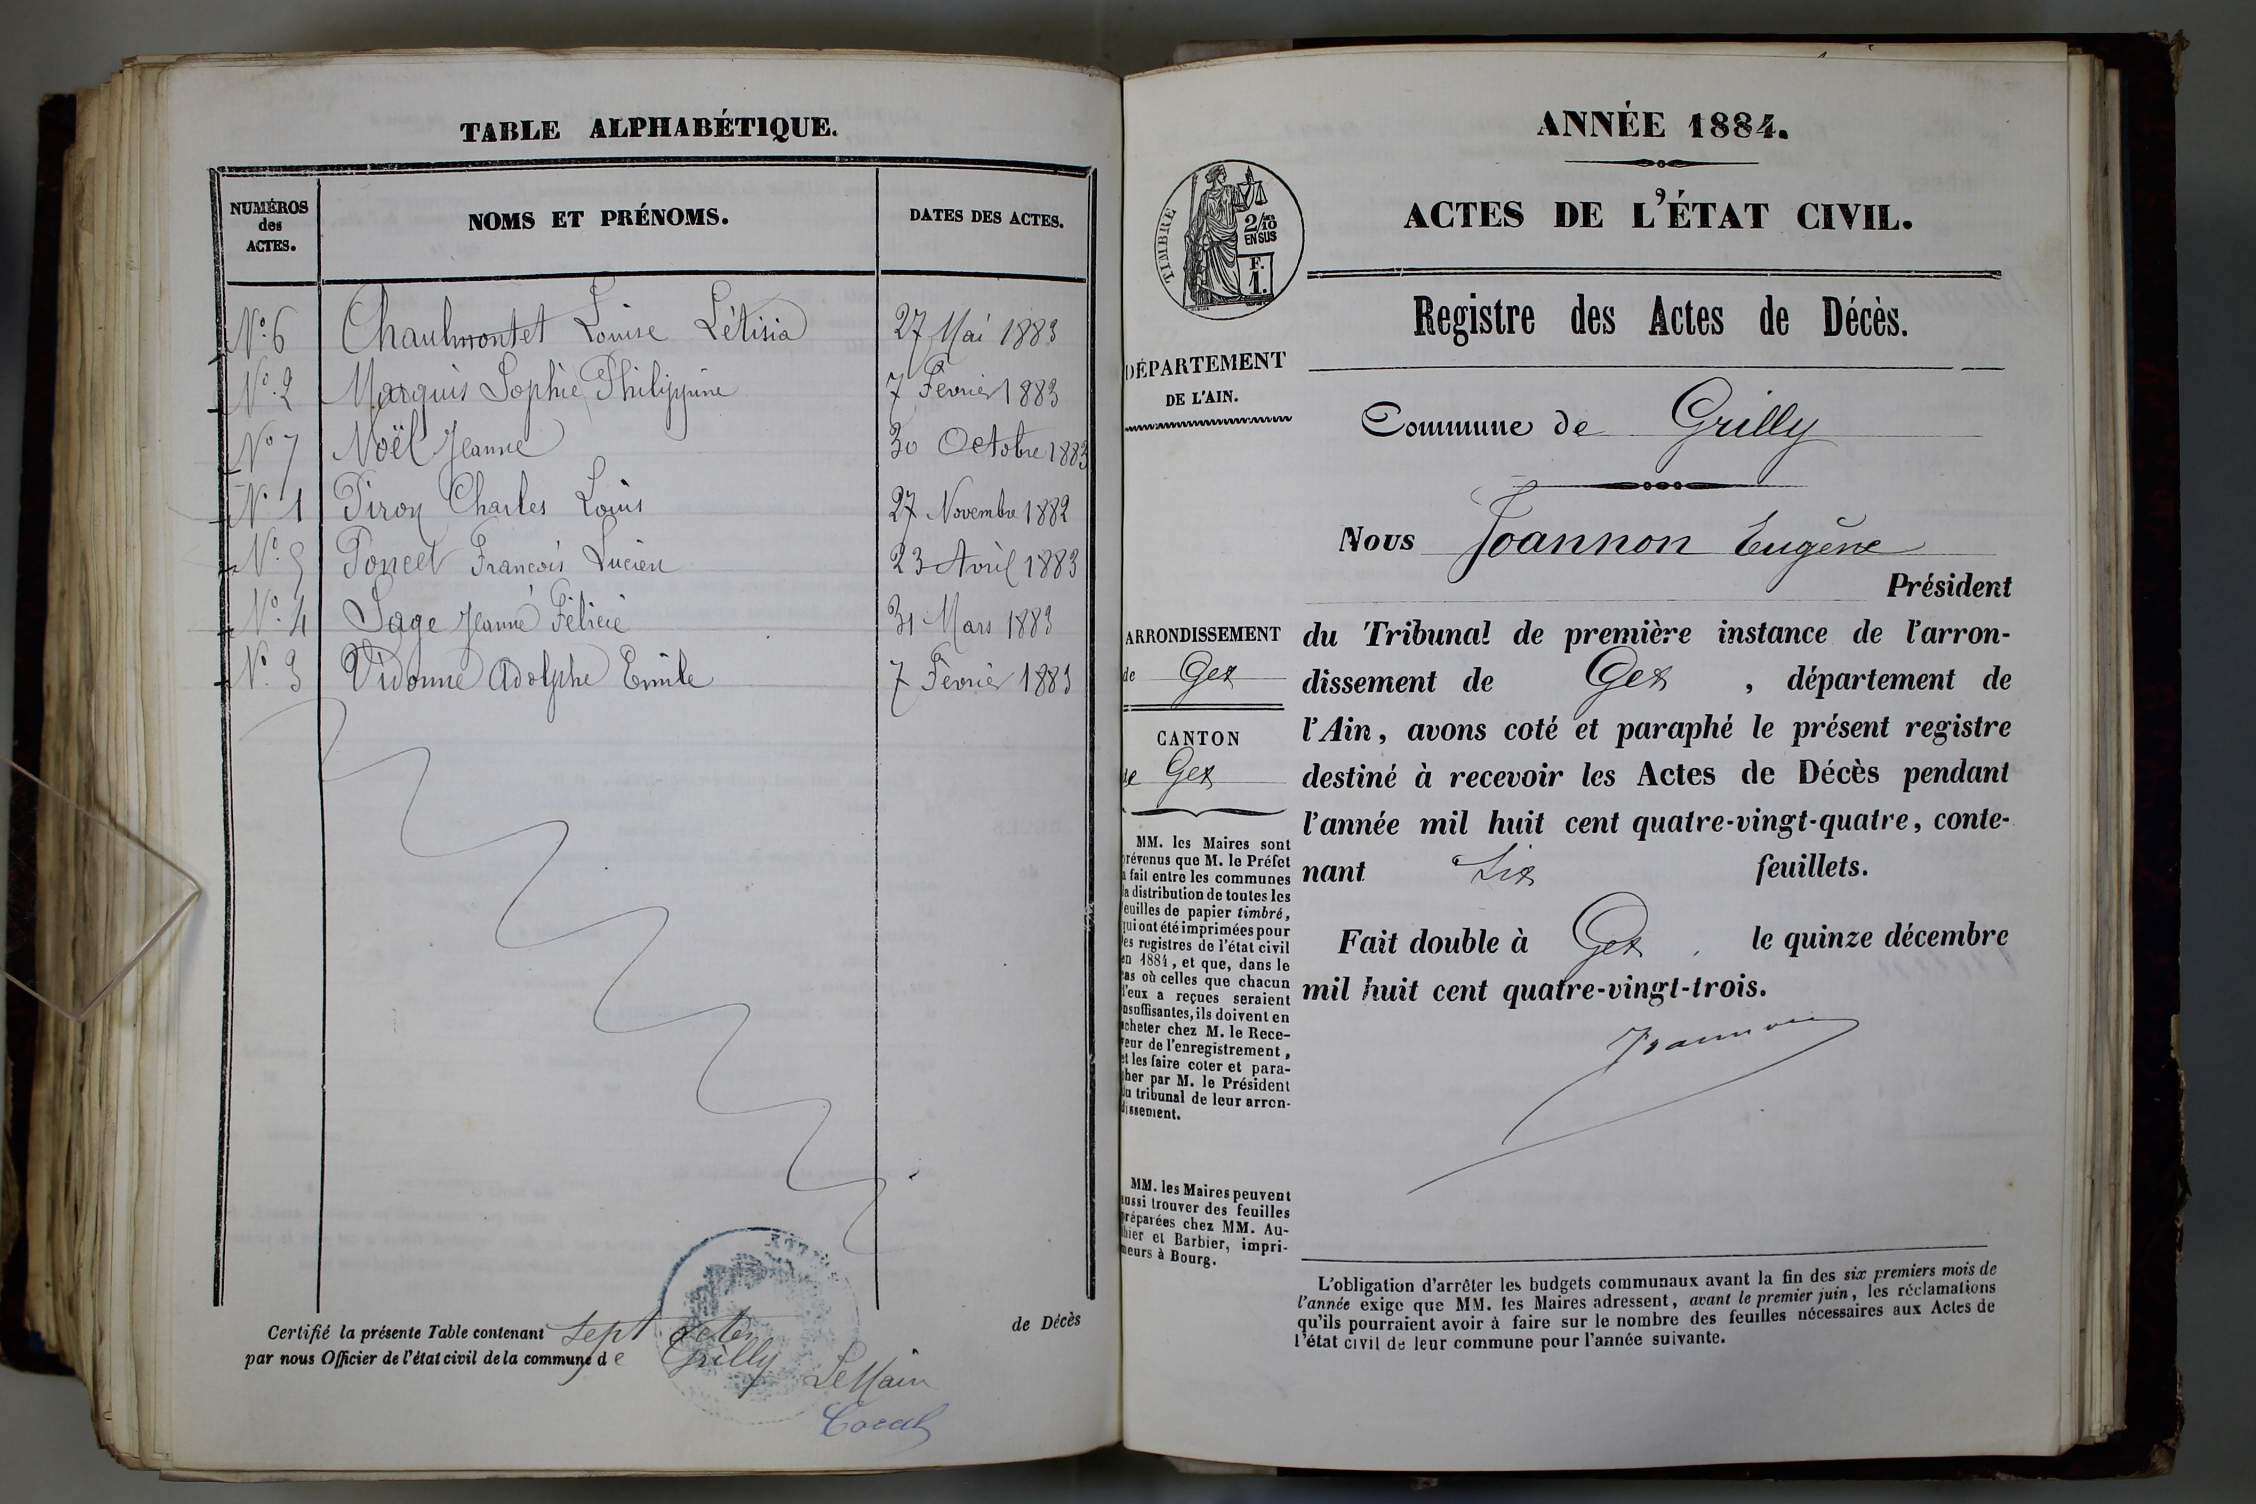 TABLE ALPHABÉTIQUE.
NUMÉROS des ACTES. NOMS ET PRÉNOMS. DATES DES ACTES.
N° 6 Chaulmontet Louise Létisia 27 Mai 1883
N° 2 Marquis Sophie Philippine 7 Fevrier 1883
N° 7 Noël Jeanne 30 Octobre 1883
N° 1 Piron Charles Louis 27 Novembre 1882
N° 5 Poncet Francois Lucien 23 Avril 1883
N° 4 Sage Jeanne Félicie 31 Mars 1883
N° 3 Vidonne Adolphe Emile 7 Fèvrier 1883
Certifié la présente Table contenant sept actes de Décès
par nous Officier de l'état civil de la commune de Grilly
Le Maire
ANNÉE 1884.
ACTES DE L'ÉTAT CIVIL.
TIMBRE
2/10 EN SUS
F. 1.
Registre des Actes de Décès.
DÉPARTEMENT
DE L'AIN.
Commune de Grilly
Nous Joannon Eugène
Président
du Tribunal de première instance de l'arron-
dissement de Gex, département de
l'Ain, avons coté et paraphé le présent registre
destiné à recevoir les Actes de Décès pendant
l'année mil huit cent quatre-vingt-quatre, conte-
nant Six feuillets.
Fait double à Gex, le quinze décembre
mil huit cent quatre-vingt-trois.
Joannon
ARRONDISSEMENT
de Gex
CANTON
de Gex
MM. les Maires sont
prévenus que M. le Préfet
a fait entre les communes
la distribution de toutes les
feuilles de papier timbré,
qui ont été imprimées pour
les registres de l'état civil
en 1884, et que, dans le
cas où celles que chacun
d'eux a reçues seraient
insuffisantes, ils doivent en
acheter chez M. le Rece-
veur de l'enregistrement,
et les faire coter et para-
pher par M. le Président
du tribunal de leur arron-
dissement.
MM. les Maires peuvent
aussi trouver des feuilles
préparées chez MM. Au-
thier et Barbier, impri-
meurs à Bourg.
L'obligation d'arrêter les budgets communaux avant la fin des six premiers mois de
l'année exige que MM. les Maires adressent, avant le premier juin, les réclamations
qu'ils pourraient avoir à faire sur le nombre des feuilles nécessaires aux Actes de
l'état civil de leur commune pour l'année suivante.